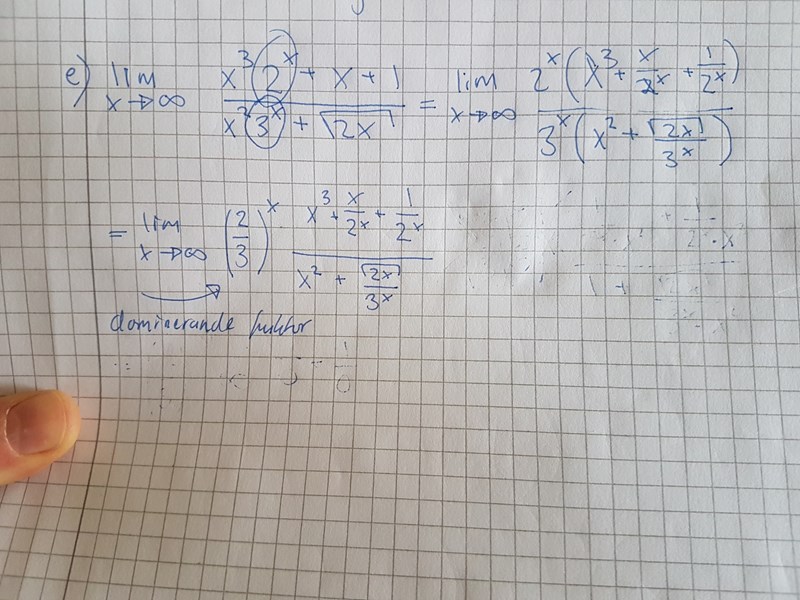 e) lim x→∞ (x³2ˣ + x + 1)/(x²3ˣ + √2x) = lim x→∞ 2ˣ(x³ + x/2ˣ + 1/2ˣ)/3ˣ(x² + √2x/3ˣ)
= lim x→∞ (2/3)ˣ (x³ + x/2ˣ + 1/2ˣ)/(x² + √2x/3ˣ)
dominerande faktor